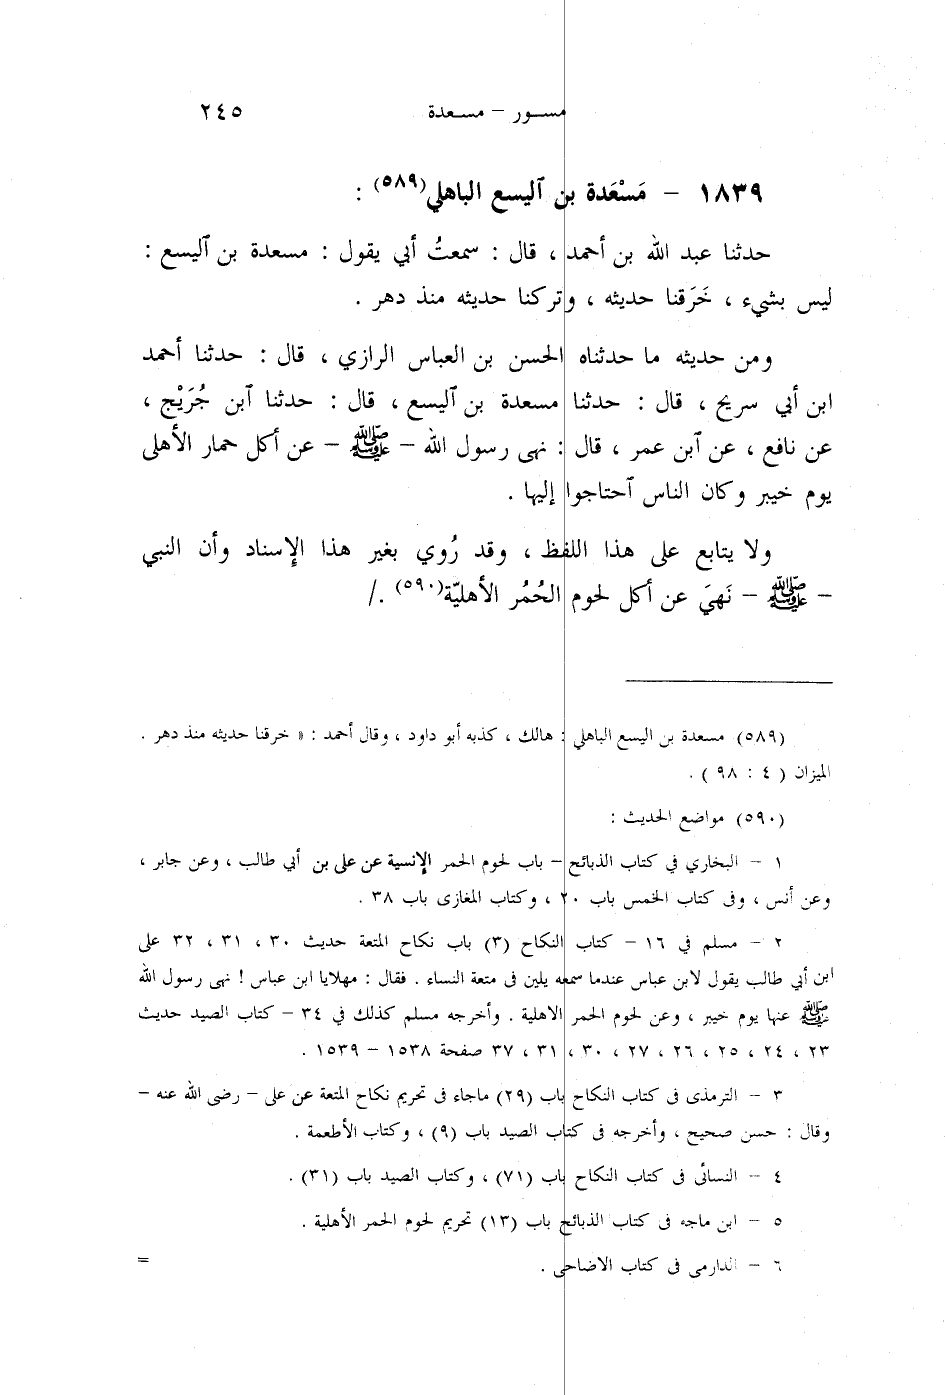 مسور – مسعدة ٢٤٥
١٨٣٩ – مَسْعَدة بن ٱليسع الباهلي(٥٨٩) :
حدثنا عبد الله بن أحمد ، قال : سمعتُ أبي يقول : مسعدة بن ٱليسع :
ليس بشيء ، خَرَقنا حديثه ، وتركنا حديثه منذ دهر .
ومن حديثه ما حدثناه الحسن بن العباس الرازي ، قال : حدثنا أحمد
ابن أبي سريح ، قال : حدثنا مسعدة بن ٱليسع ، قال : حدثنا ٱبن جُرَيْج ،
عن نافع ، عن ٱبن عمر ، قال : نهى رسول الله – ﷺ – عن أكل حمار الأهلى
يوم خيبر وكان الناس ٱحتاجوا إليها .
ولا يتابع على هذا اللفظ ، وقد رُوي بغير هذا الإسناد وأن النبي
– ﷺ – نَهىَ عن أكل لحوم الحُمُر الأهليّة(٥٩٠) ./
(٥٨٩) مسعدة بن اليسع الباهلي : هالك ، كذبه أبو داود ، وقال أحمد : « خرقنا حديثه منذ دهر .
الميزان ( ٤ : ٩٨ ) .
(٥٩٠) مواضع الحديث :
١ – البخاري في كتاب الذبائح – باب لحوم الحمر الإنسية عن على بن أبي طالب ، وعن جابر ،
وعن أنس ، وفى كتاب الخمس باب ٢٠ ، وكتاب المغازى باب ٣٨ .
٢ – مسلم في ١٦ – كتاب النكاح (٣) باب نكاح المتعة حديث ٣٠ ، ٣١ ، ٣٢ على
ابن أبي طالب يقول لابن عباس عندما سمعه يلين فى متعة النساء . فقال : مهلايا ابن عباس ! نهى رسول الله
ﷺ عنها يوم خيبر ، وعن لحوم الحمر الاهلية . وأخرجه مسلم كذلك في ٣٤ – كتاب الصيد حديث
٢٣ ، ٢٤ ، ٢٥ ، ٢٦ ، ٢٧ ، ٣٠ ، ٣١ ، ٣٧ صفحة ١٥٣٨ – ١٥٣٩ .
٣ – الترمذى فى كتاب النكاح باب (٢٩) ماجاء فى تحريم نكاح المتعة عن على – رضى الله عنه –
وقال : حسن صحيح ، وأخرجه فى كتاب الصيد باب (٩) ، وكتاب الأطعمة .
٤ – النسائى فى كتاب النكاح باب (٧١) ، وكتاب الصيد باب (٣١) .
٥ – ابن ماجه فى كتاب الذبائح باب (١٣) تحريم لحوم الحمر الأهلية .
٦ – الدارمى فى كتاب الاضاحى . =